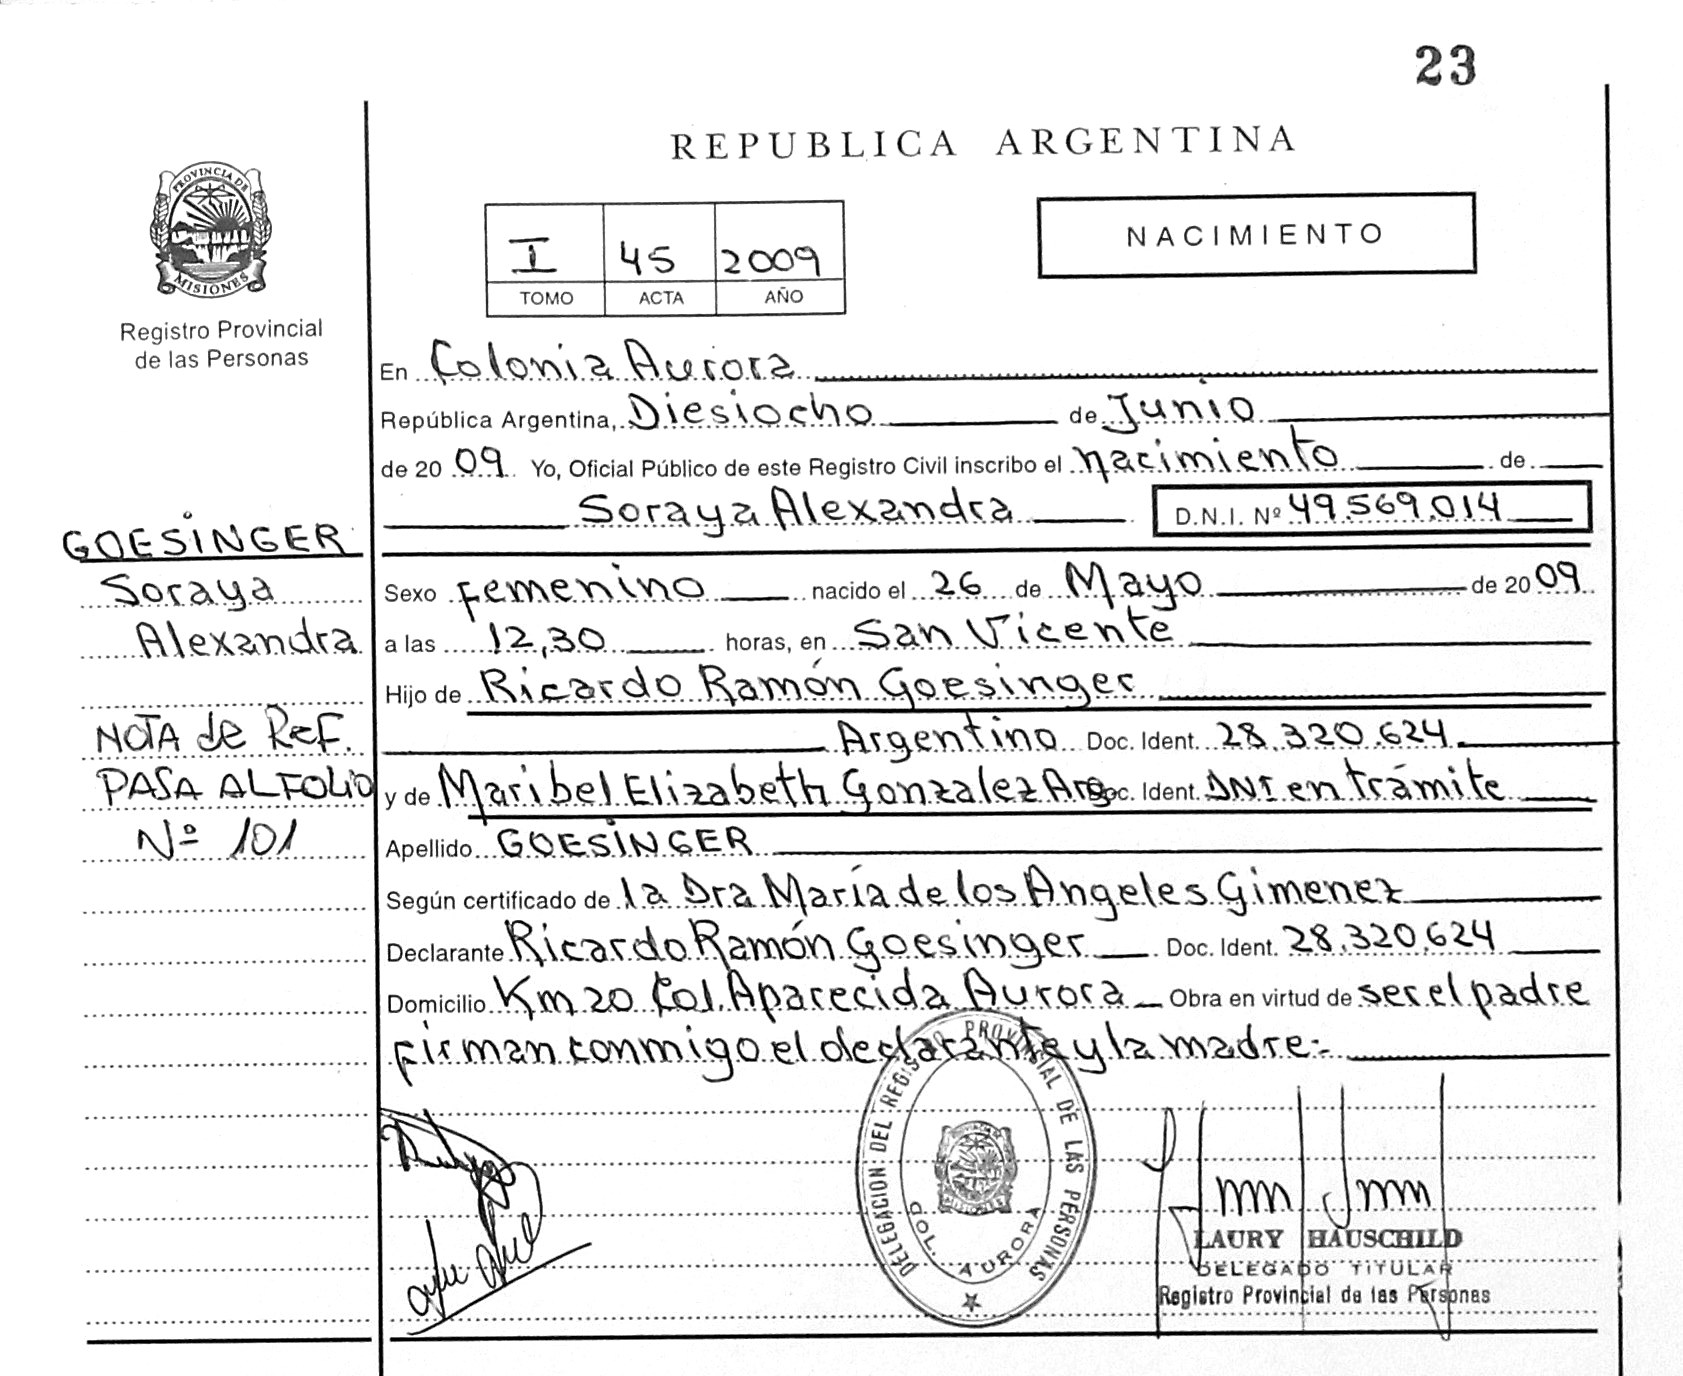 23
REPUBLICA ARGENTINA
PROVINCIA DE
MISIONES
Registro Provincial
de las Personas
I 45 2009
TOMO ACTA AÑO
NACIMIENTO
En Colonia Aurora
República Argentina, Diesiocho de Junio
de 20 09 Yo, Oficial Público de este Registro Civil inscribo el nacimiento de
Soraya Alexandra D.N.I. Nº 49.569.014
GOESINGER
Soraya
Alexandra
NOTA de REF.
PASA AL FOLIO
Nº 101
Sexo Femenino nacido el 26 de Mayo de 20 09
a las 12,30 horas, en San Vicente
Hijo de Ricardo Ramón Goesinger
Argentino Doc. Ident. 28.320.624
y de Maribel Elizabeth Gonzalez Arg Doc. Ident. DNI en trámite
Apellido GOESINGER
Según certificado de la Dra María de los Angeles Gimenez
Declarante Ricardo Ramón Goesinger Doc. Ident. 28.320.624
Domicilio Km 20 Col. Aparecida Aurora Obra en virtud de ser el padre
firman conmigo el declarante y la madre.-
DELEGACION DEL REGISTRO PROVINCIAL DE LAS PERSONAS
COL. AURORA
LAURY HAUSCHILD
DELEGADO TITULAR
Registro Provincial de las Personas